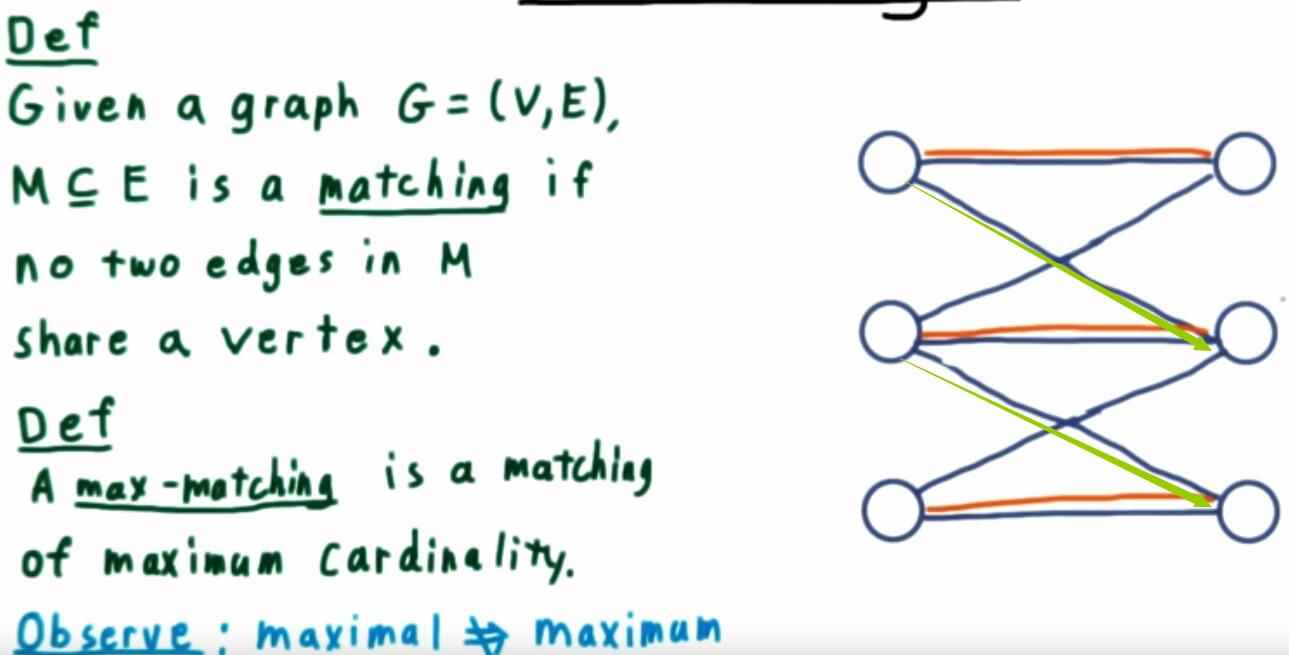 Def
Given a graph G = (V,E),
M ⊆ E is a matching if
no two edges in M
share a vertex.
Def
A max-matching is a matching
of maximum cardinality.
Observe: maximal ⇏ maximum